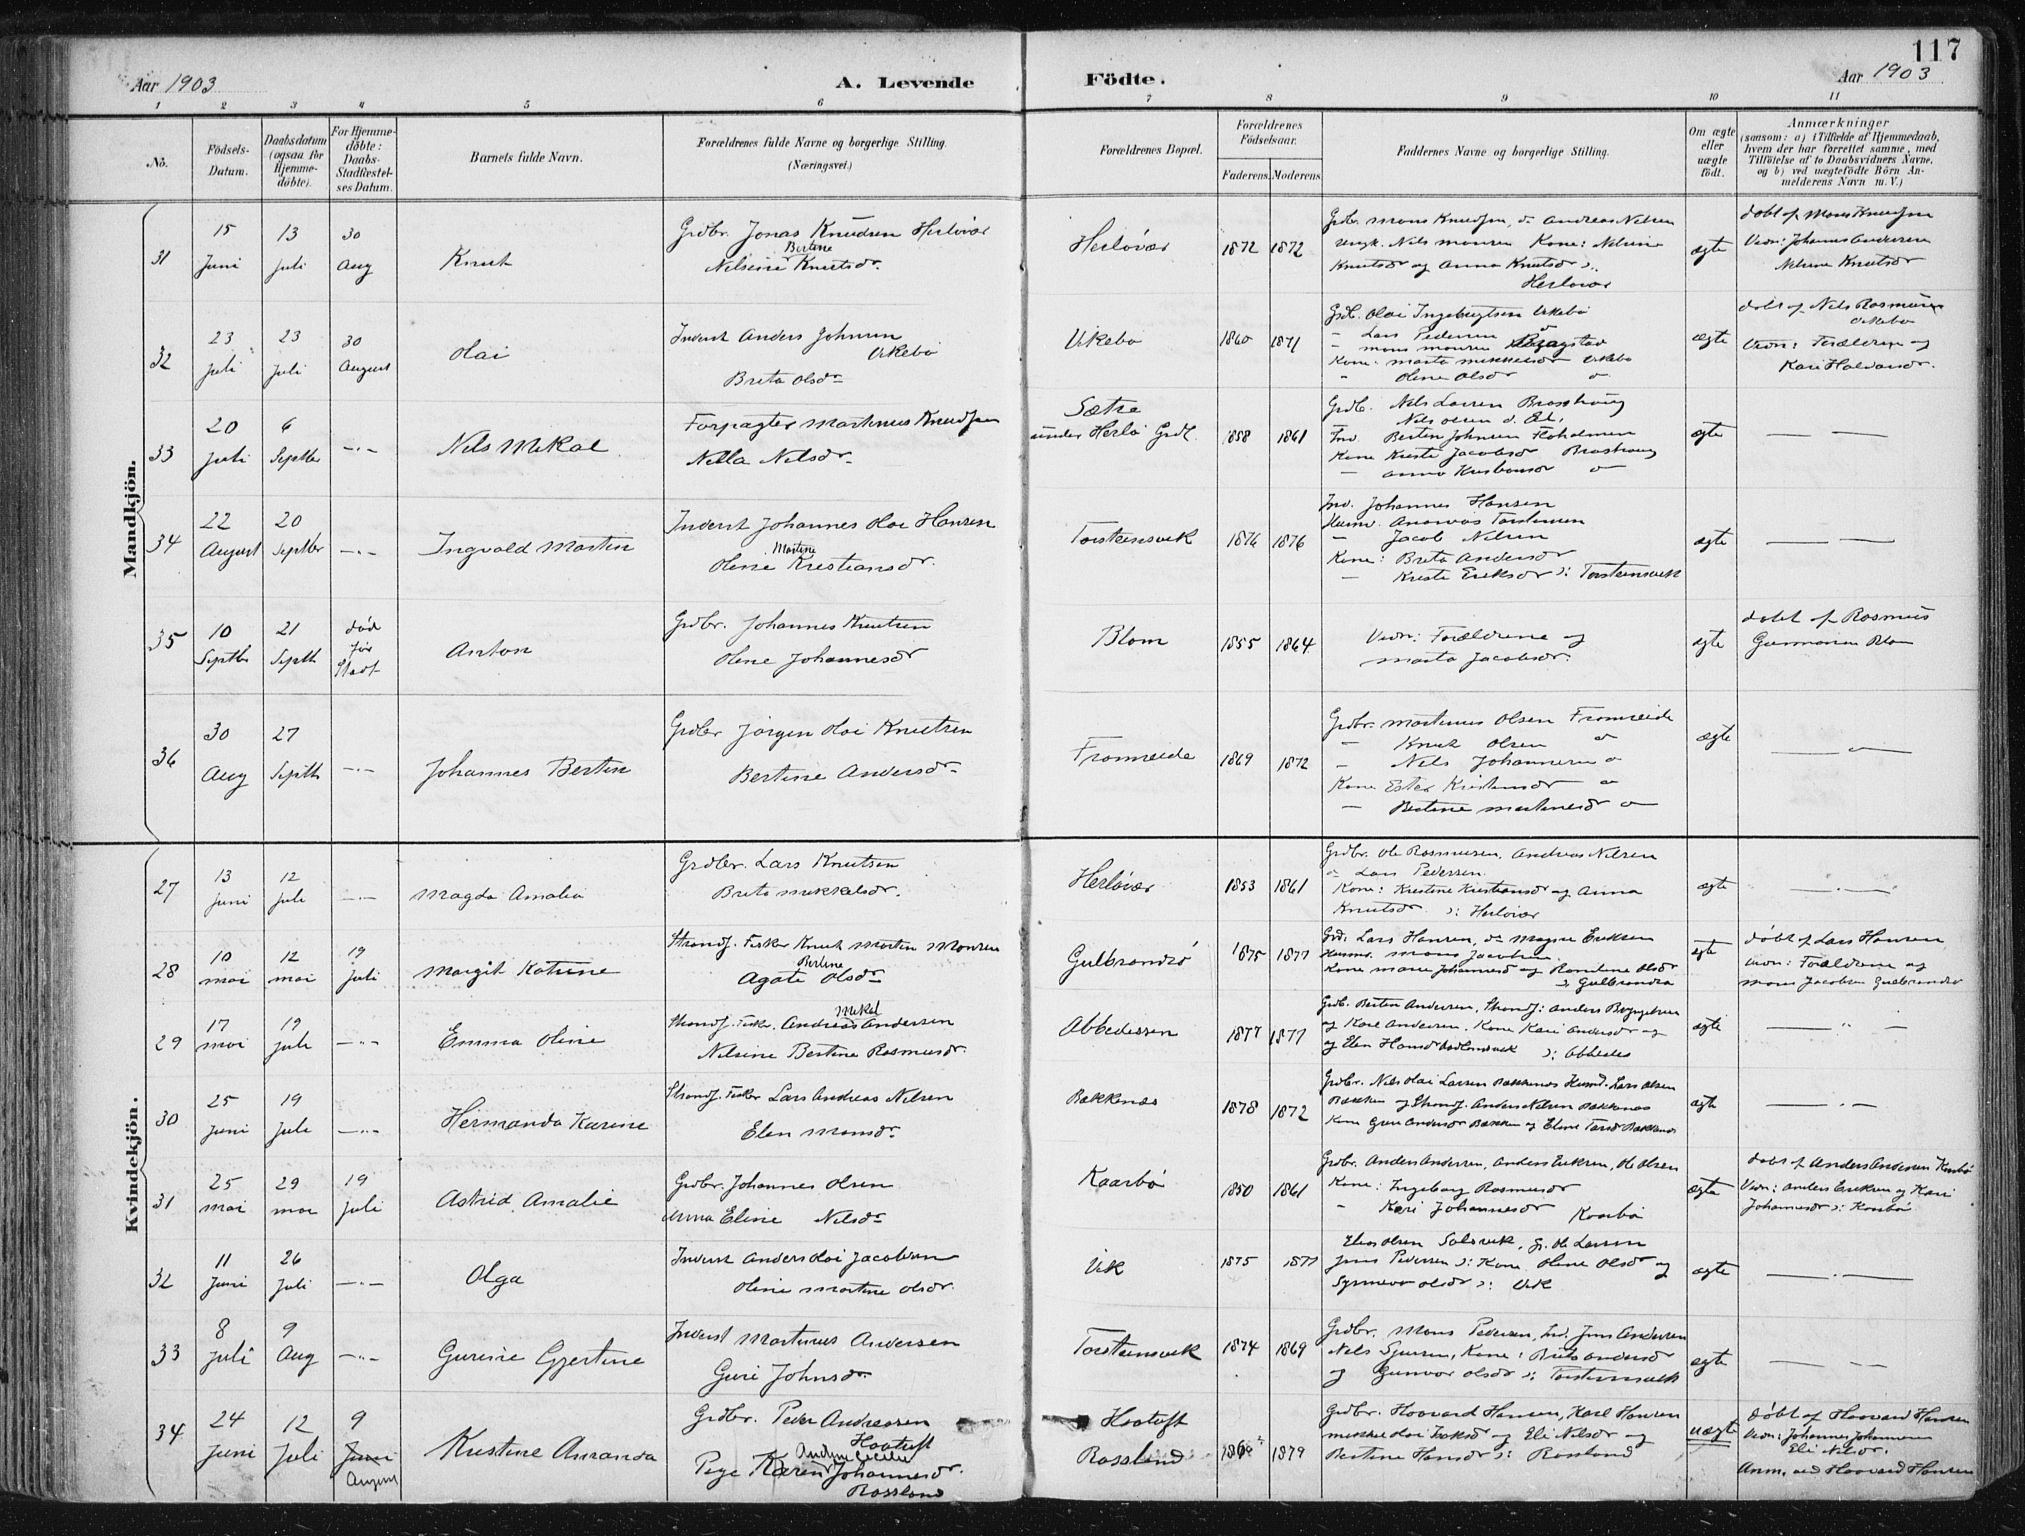 117
Aar 1903
A. Levende Födte.
Aar 1903
1 2 3 4 5 6 7 8 9 10 11
No.
Födsels-Datum.
Daabsdatum (ogsaa for Hjemmedöbte).
For Hjemmedöbte: Daabs-Stadfæstelses Datum.
Barnets fulde Navn.
Forældrenes fulde Navne og borgerlige Stilling.
(Næringsvei.)
Forældrenes Bopæl.
Forældrenes Födselsaar.
Faderens. Moderens.
Faddernes Navne og borgerlige Stilling.
Om ægte eller uægte födt.
Anmærkninger
(saasom: a) i Tilfælde af Hjemmedaab,
hvem der har forrettet samme, med
Tilföielse af to Daabsvidners Navne,
og b) ved uægtefödte Börn Anmelderens Navn m. V.)
Mandkjön.
31
15 Juni
13 Juli
30 Aug
Knut
Grdbr. Jonas Knudsen Herløvær
Bertine
Nilsine Knutsdr.
Herløvær
1872 1872
Grdbr. Mons Knudsen, do Andreas Nilsen
Nils Monsen Kone: Nilsine
Knutsdr og Anna Knutsdr
Herløvær
ægte
døbt af Mons Knudsen
Vidn: Johannes Andersen
Nilsine Knutsdr
32
23 Juli
23 Juli
30 August
Olai
Inderst Anders Johnsen
Vikebø
Brita Olsdr
Vikebø
1860 1871
Grdb. Olai Ingebrigtsen Vikebø
" Lars Pedersen
" Mons Monsen
Kone: Marta Mikkelsdr Vikebø
" Oline Olsdr
ægte
døbt af Nils Rasmusen
Vikebø
Vidn: Forældrene og
Kari Halvorsdr.
33
20 Juli
6 Septbr
Nils Mikal
Forpagter Martinus Knudsen
Nilla Nilsdr
Sætre
under Herlø Grdl.
1858 1861
Grdb. Nils Larsen
Nils Olsen
Ind. Berten Johnsen
Kone Kriste Jacobsdr
ægte
34
22 August
20 Septbr
Ingvald Martin
Inderst Johannes Olai Hansen
Martine
Oline Kristiansdr.
Torsteinsvik
1876 1876
Ind. Johannes Hansen
Husm. Andreas Torsteinsen
" Jacob Nilsen
Kone: Brita Andersdr
" Kriste Eriksdr Torsteinsvik
ægte
35
10 Septbr
21 Septb
død før Stadf
Anton
Grdbr. Johannes Knutsen
Oline Johannesdr
Blom
1855 1864
Vidn: Forældrene og
Marta Jacobsdr.
ægte
døbt af Rasmus
Blom
36
30 Aug
27 Septb
Johannes Bertin
Grdbr Jørgen Olai Knutsen
Bertine Andersdr
Fromreide
1869 1872
Grdbr. Martinus Olsen Fromreide
" Knut Olsen
" Nils Johannesen
Kone Ester Kristensdr
" Bertine Martinesdr
ægte
Kvindekjön.
27
13 Juni
12 Juli
Magda Amalia
Grdbr. Lars Knutsen
Brita Mikkelsdr.
Herløvær
1853 1861
Grdbr. Ole Rasmusen, Andreas Nilsen
" Lars Pedersen
Kone: Kristine Kristiansdr og Anna
Knutsdr Herløvær
ægte
28
10 Mai
12 Mai
19 Juli
Margit Katrine
Strands. Fisker Knut Martin Monsen
Bertine
Agate Olsdr
Gulbrandsø
1875 1877
Grd. Lars Hansen, do Magne Eriksen
Husm. Mons Jacobsen
Kone Marie Johannesd og Olsdr
Gulbrandsø
ægte
døbt af Lars Hansen
Vidn: Forældrene og
Mons Jacobsen Gulbrandsø
29
17 Mai
19 Juli
Emma Oline
Mikal
Strands. Fisker. Andreas Andersen
Nilsine Bertine Rasmusdr.
Abbedissen
1877 1877
Grdb. Berten Andersen, Strands: Anders
og Karl Andersen. Kone Kari Andersdr og
og Elen Hansdr
ægte
30
25 Juni
19 Juli
Hermanda Karine
Strands. Fisker Lars Andreas Nilsen
Elen Monsdr
Bakkenæs
1878 1872
Grdbr. Nils Olai Larsen Bakkenæs Husmd. Lars Olsen
Bakken og Strands. Anders Nilsen Bakkenæs
Kone Guri Andersdr Bakken og Eline Bakkenæs
ægte
31
25 Mai
29 Mai
19 Juli
Astrid Amalie
Grdbr. Johannes Olsen
Anna Eline Nilsdr
Kaarbø
1850 1861
Grdbr. Anders Andersen, Anders Eriksen, Ole Olsen
Kone: Ingeborg Rasmusdr
" Kari Johannesdr
Kaarbø
ægte
døbt af Anders Andersen Kaarbø
Vidn: Anders Eriksen og Kari
Johannesdr Kaarbø
32
11 Juni
26 Juli
Olga
Inderst Anders Olai Jacobsen
Oline Martine Olsdr.
Vik
1875 1877
Elias Olsen Solsvik, Gr. Ole Larsen
Jens Pedersen Kone Oline Olsdr og
Synneva Olsdr Vik
ægte
33
8 Juli
9 Aug
Gurine Gjertine
Inderst Martinus Andersen
Guri Johnsdr
Torsteinsvik
1874 1869
Grdbr. Mons Pedersen, Ind. Jens Andersen
Nils Sjursen, Kone: Brita Andersdr
og Gunvor Olsdr Torsteinsvik
ægte
34
24 Juni
12 Juli
9 Juni
August
Kristine Amanda
Grdbr. Peder Andreasen
Hoatuft
Pige Karen Johannesdr.
Rossland
Hoatuft
Rossland
1879
Grdbr. Haavard Hansen, Karl Hansen
og Eli Nilsdr og
Bertine Hansdr Rossland
uægte
døbt af Haavard Hansen
Vidn: Johannes Johannesen
Eli Nilsdr.
Anm. ved Haavard Hansen